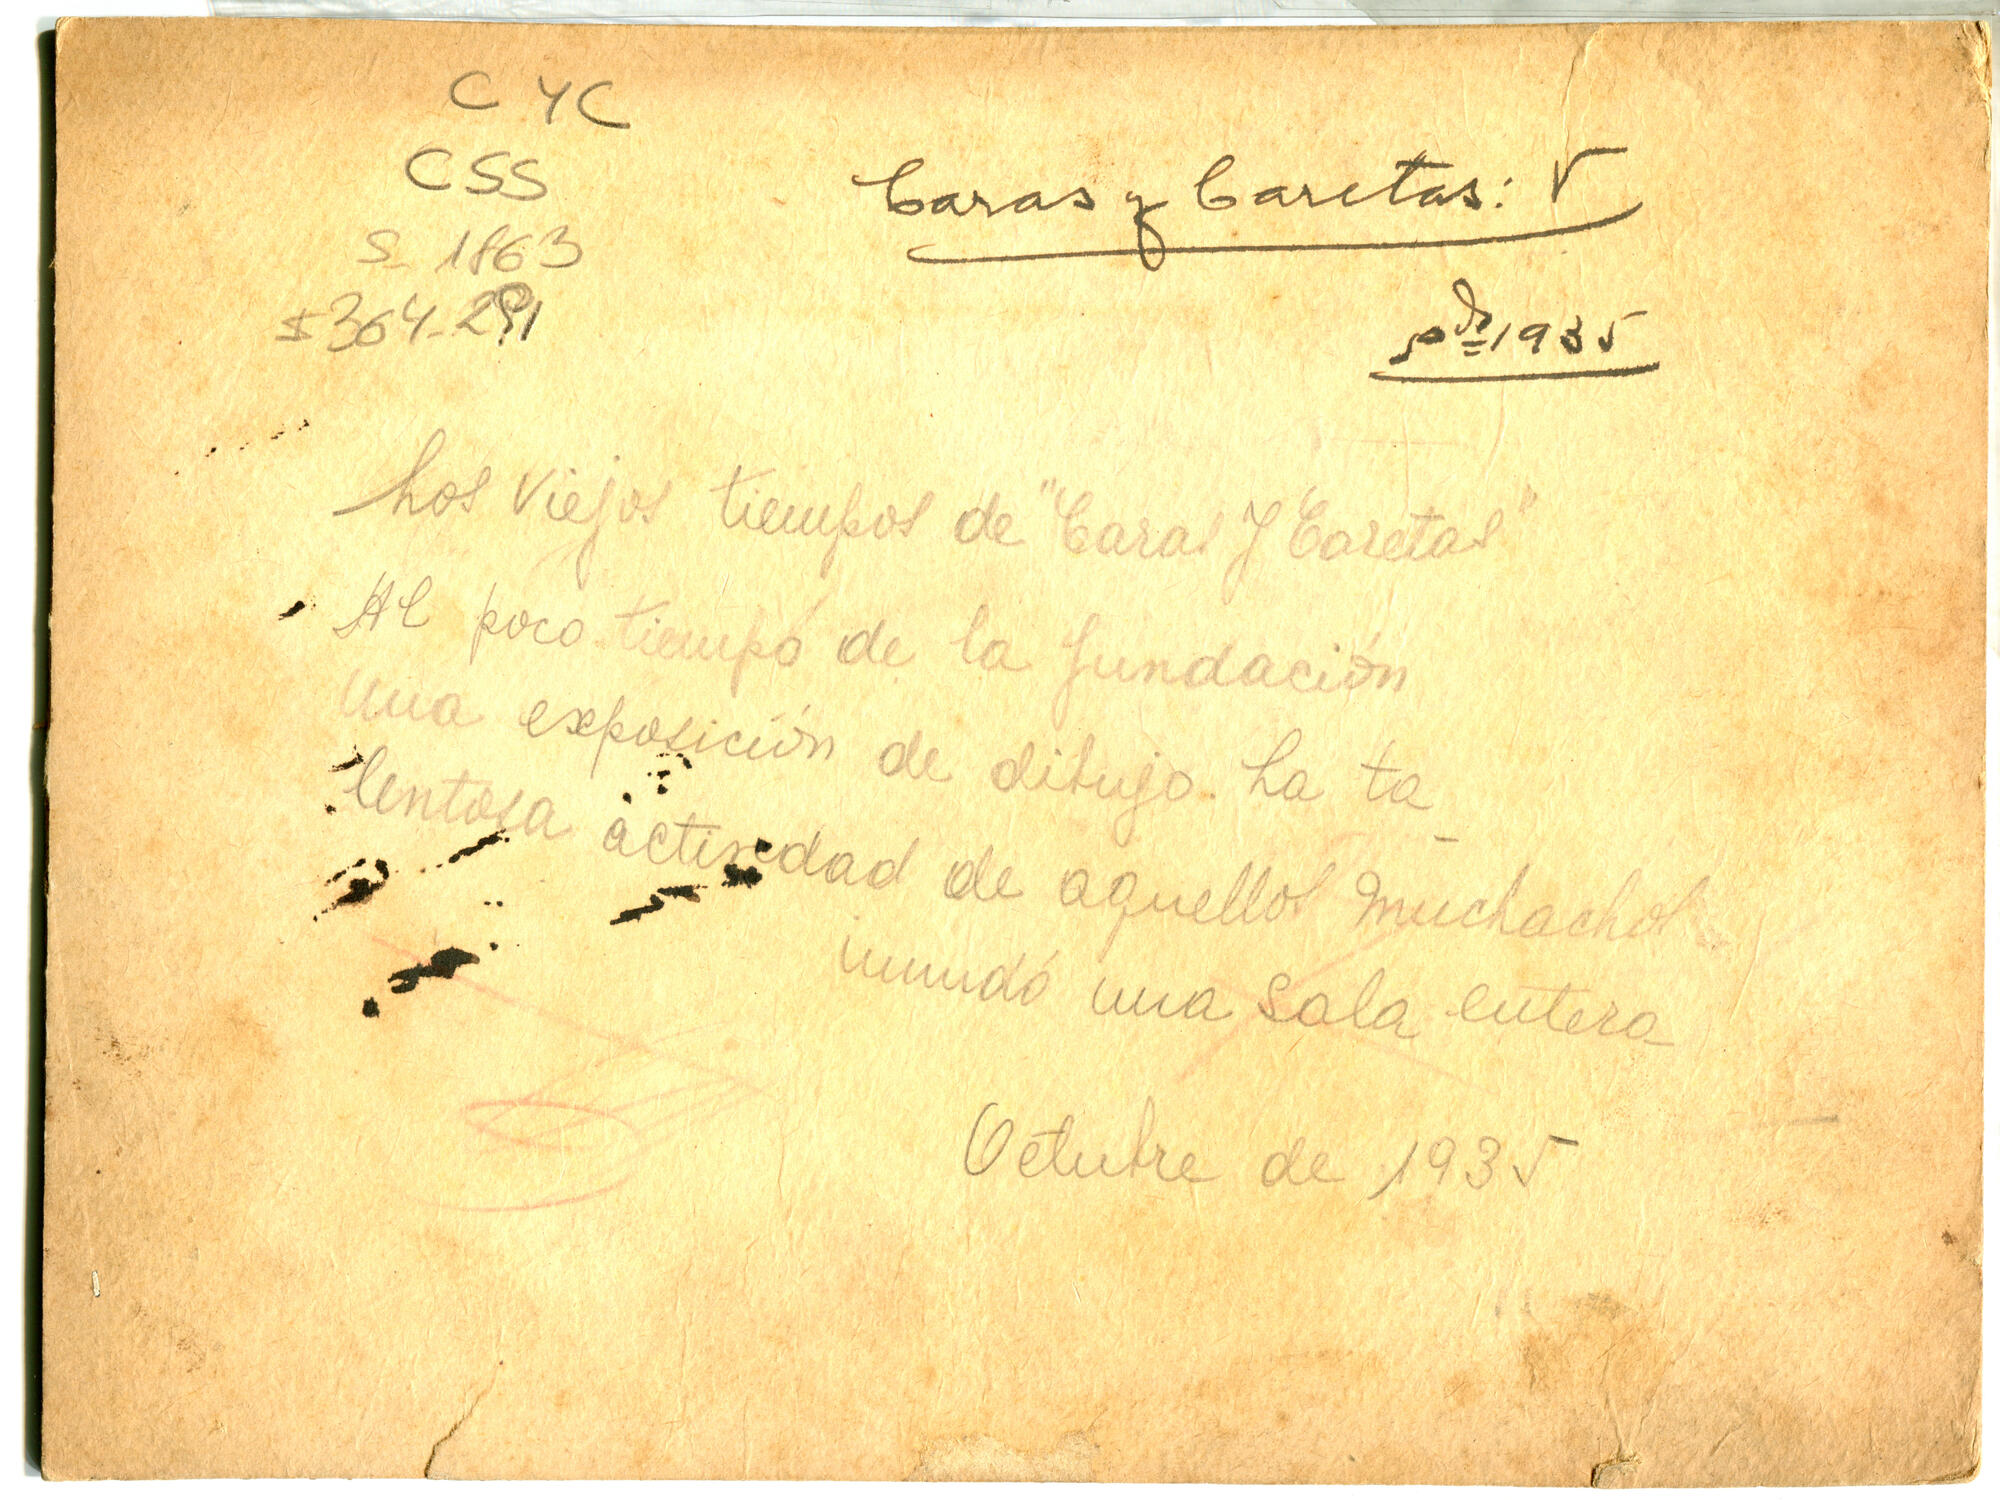 C Y C
CSS
S. 1863
$364-291
Caras y Caretas: V
1935
Los viejos tiempos de "Caras y Caretas"
Al poco tiempo de la fundación
una exposición de dibujo. La ta
lentosa actividad de aquellos muchachos
inundó una sala entera
Octubre de 1935